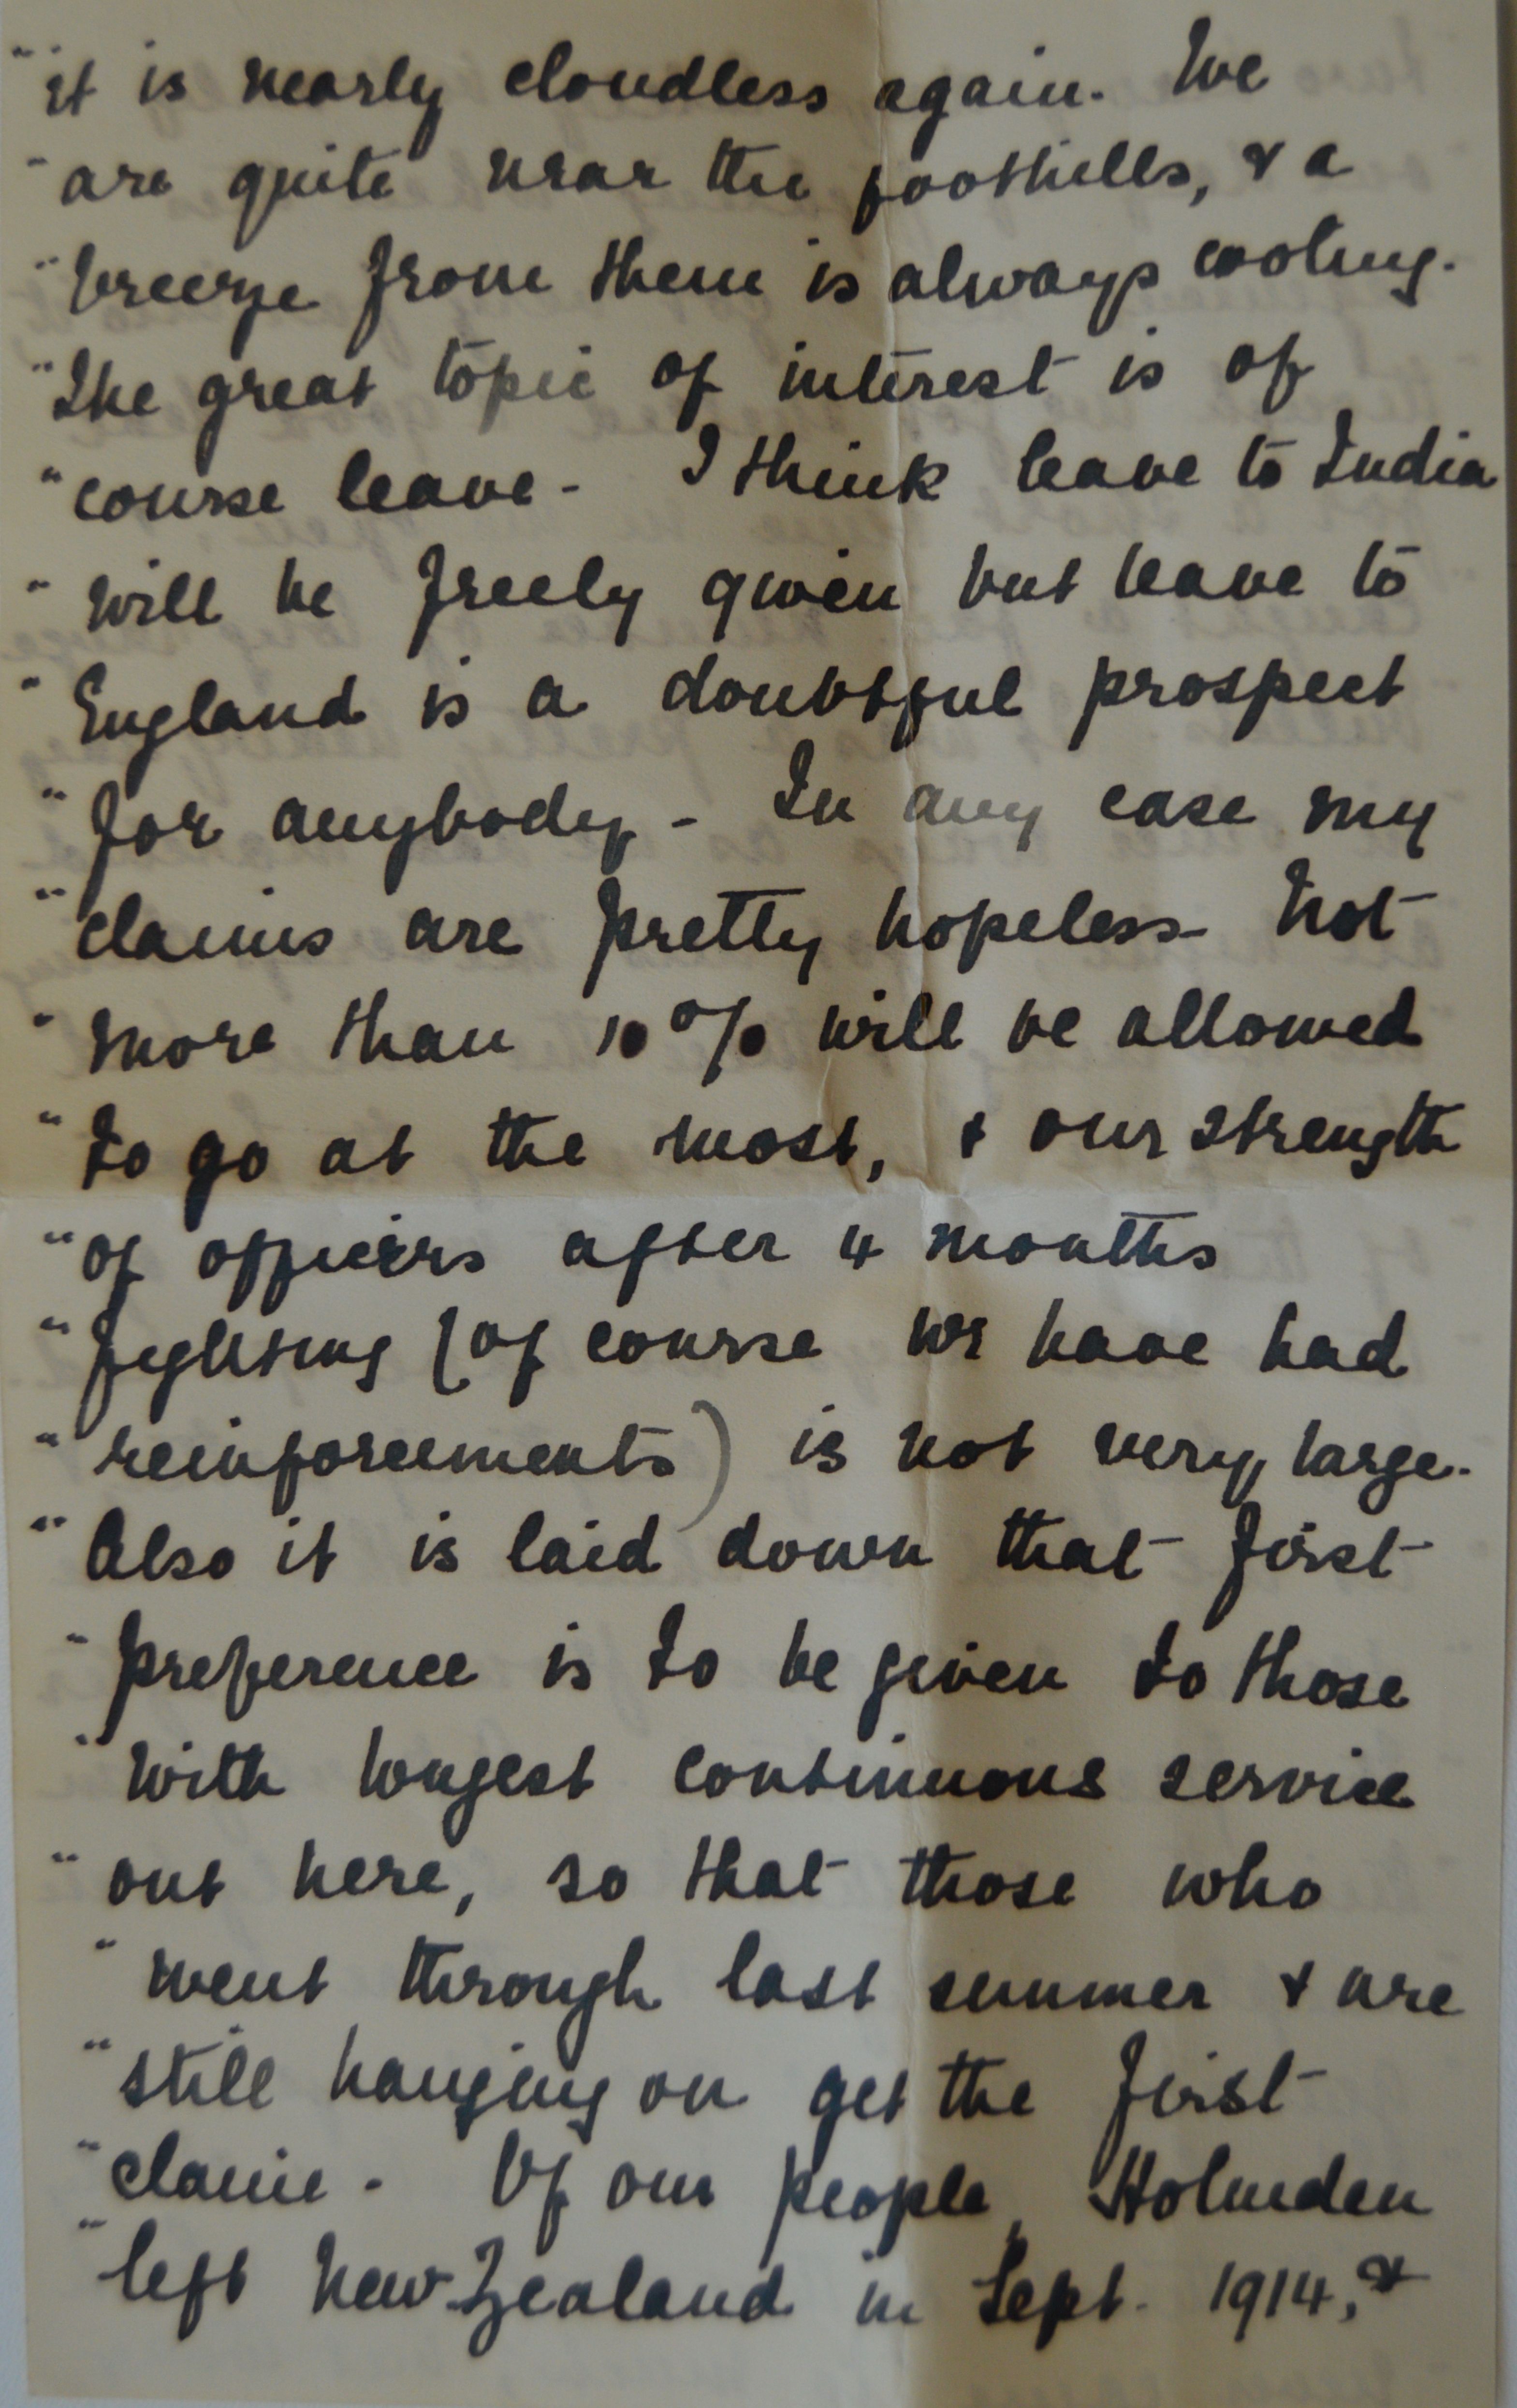 "it is nearly cloudless again. We
"are quite near the foothills, & a
"breeze from them is always cooling.
"The great topic of interest is of
"course leave - I think leave to India
"will be freely given but leave to
"England is a doubtful prospect
"for anybody - In any case my
"claims are pretty hopeless - Not
"more than 10% will be allowed
"to go at the most, & our strength
"of officers after 4 months
"fighting (of course we have had
"reinforcements) is not very large.
"Also it is laid down that first
"preference is to be given to those
"with longest continuous service
"out here, so that those who
"went through last summer & are
"still hanging on get the first
"claim - Of our people, Holmden
"left New Zealand in Sept. 1914, &